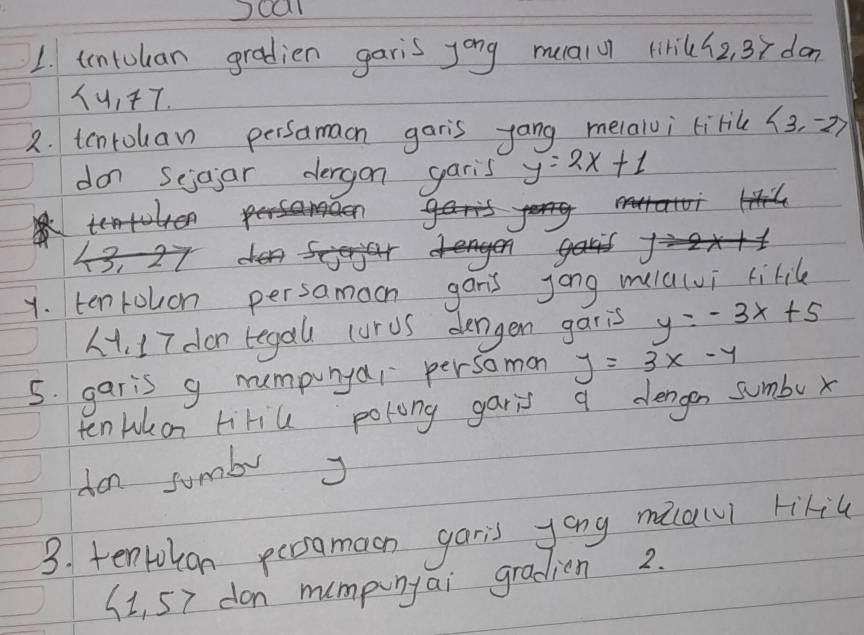 Soal
1. tentukan gradien garis yang melalui titik <2,3> dan
<4,7>.
2. tentukan persamaan garis yang melalui titik <3,-2>
dan sejajar dengan garis y=2x+1
tentuken persamaan garis yang melalui titik
<3,-2> dan sejajar dengan garis y=2x+1
4. tentukan persamaan garis yang melalui titik
<4,1> dan tegak lurus dengan garis y=-3x+5
5. garis g mempunyai persaman y=3x-4
tentukan titik potong garis g dengan sumbu x
dan sumbu y
3. tentukan persamaan garis yang melalui titik
<1,5> dan mempunyai gradien 2.